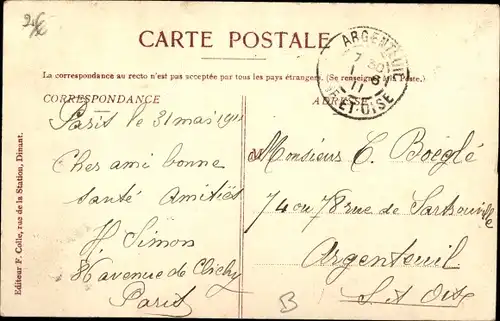 CARTE POSTALE
La correspondance au recto n'est pas acceptée par tous les pays étrangers. (Se renseigner à la Poste.)
CORRESPONDANCE
ADRESSE
ARGENTEUIL
7 30
1 6
11
S.-ET-OISE
Paris le 31 mai 1911
Cher ami bonne
santé Amitiés
H Simon
86 avenue de Clichy
Paris
Monsieur C. Boéglé
74 ou 78 rue de Sartrouville
Argenteuil
S et Oise
B
Editeur F. Colle, rue de la Station, Dinant.